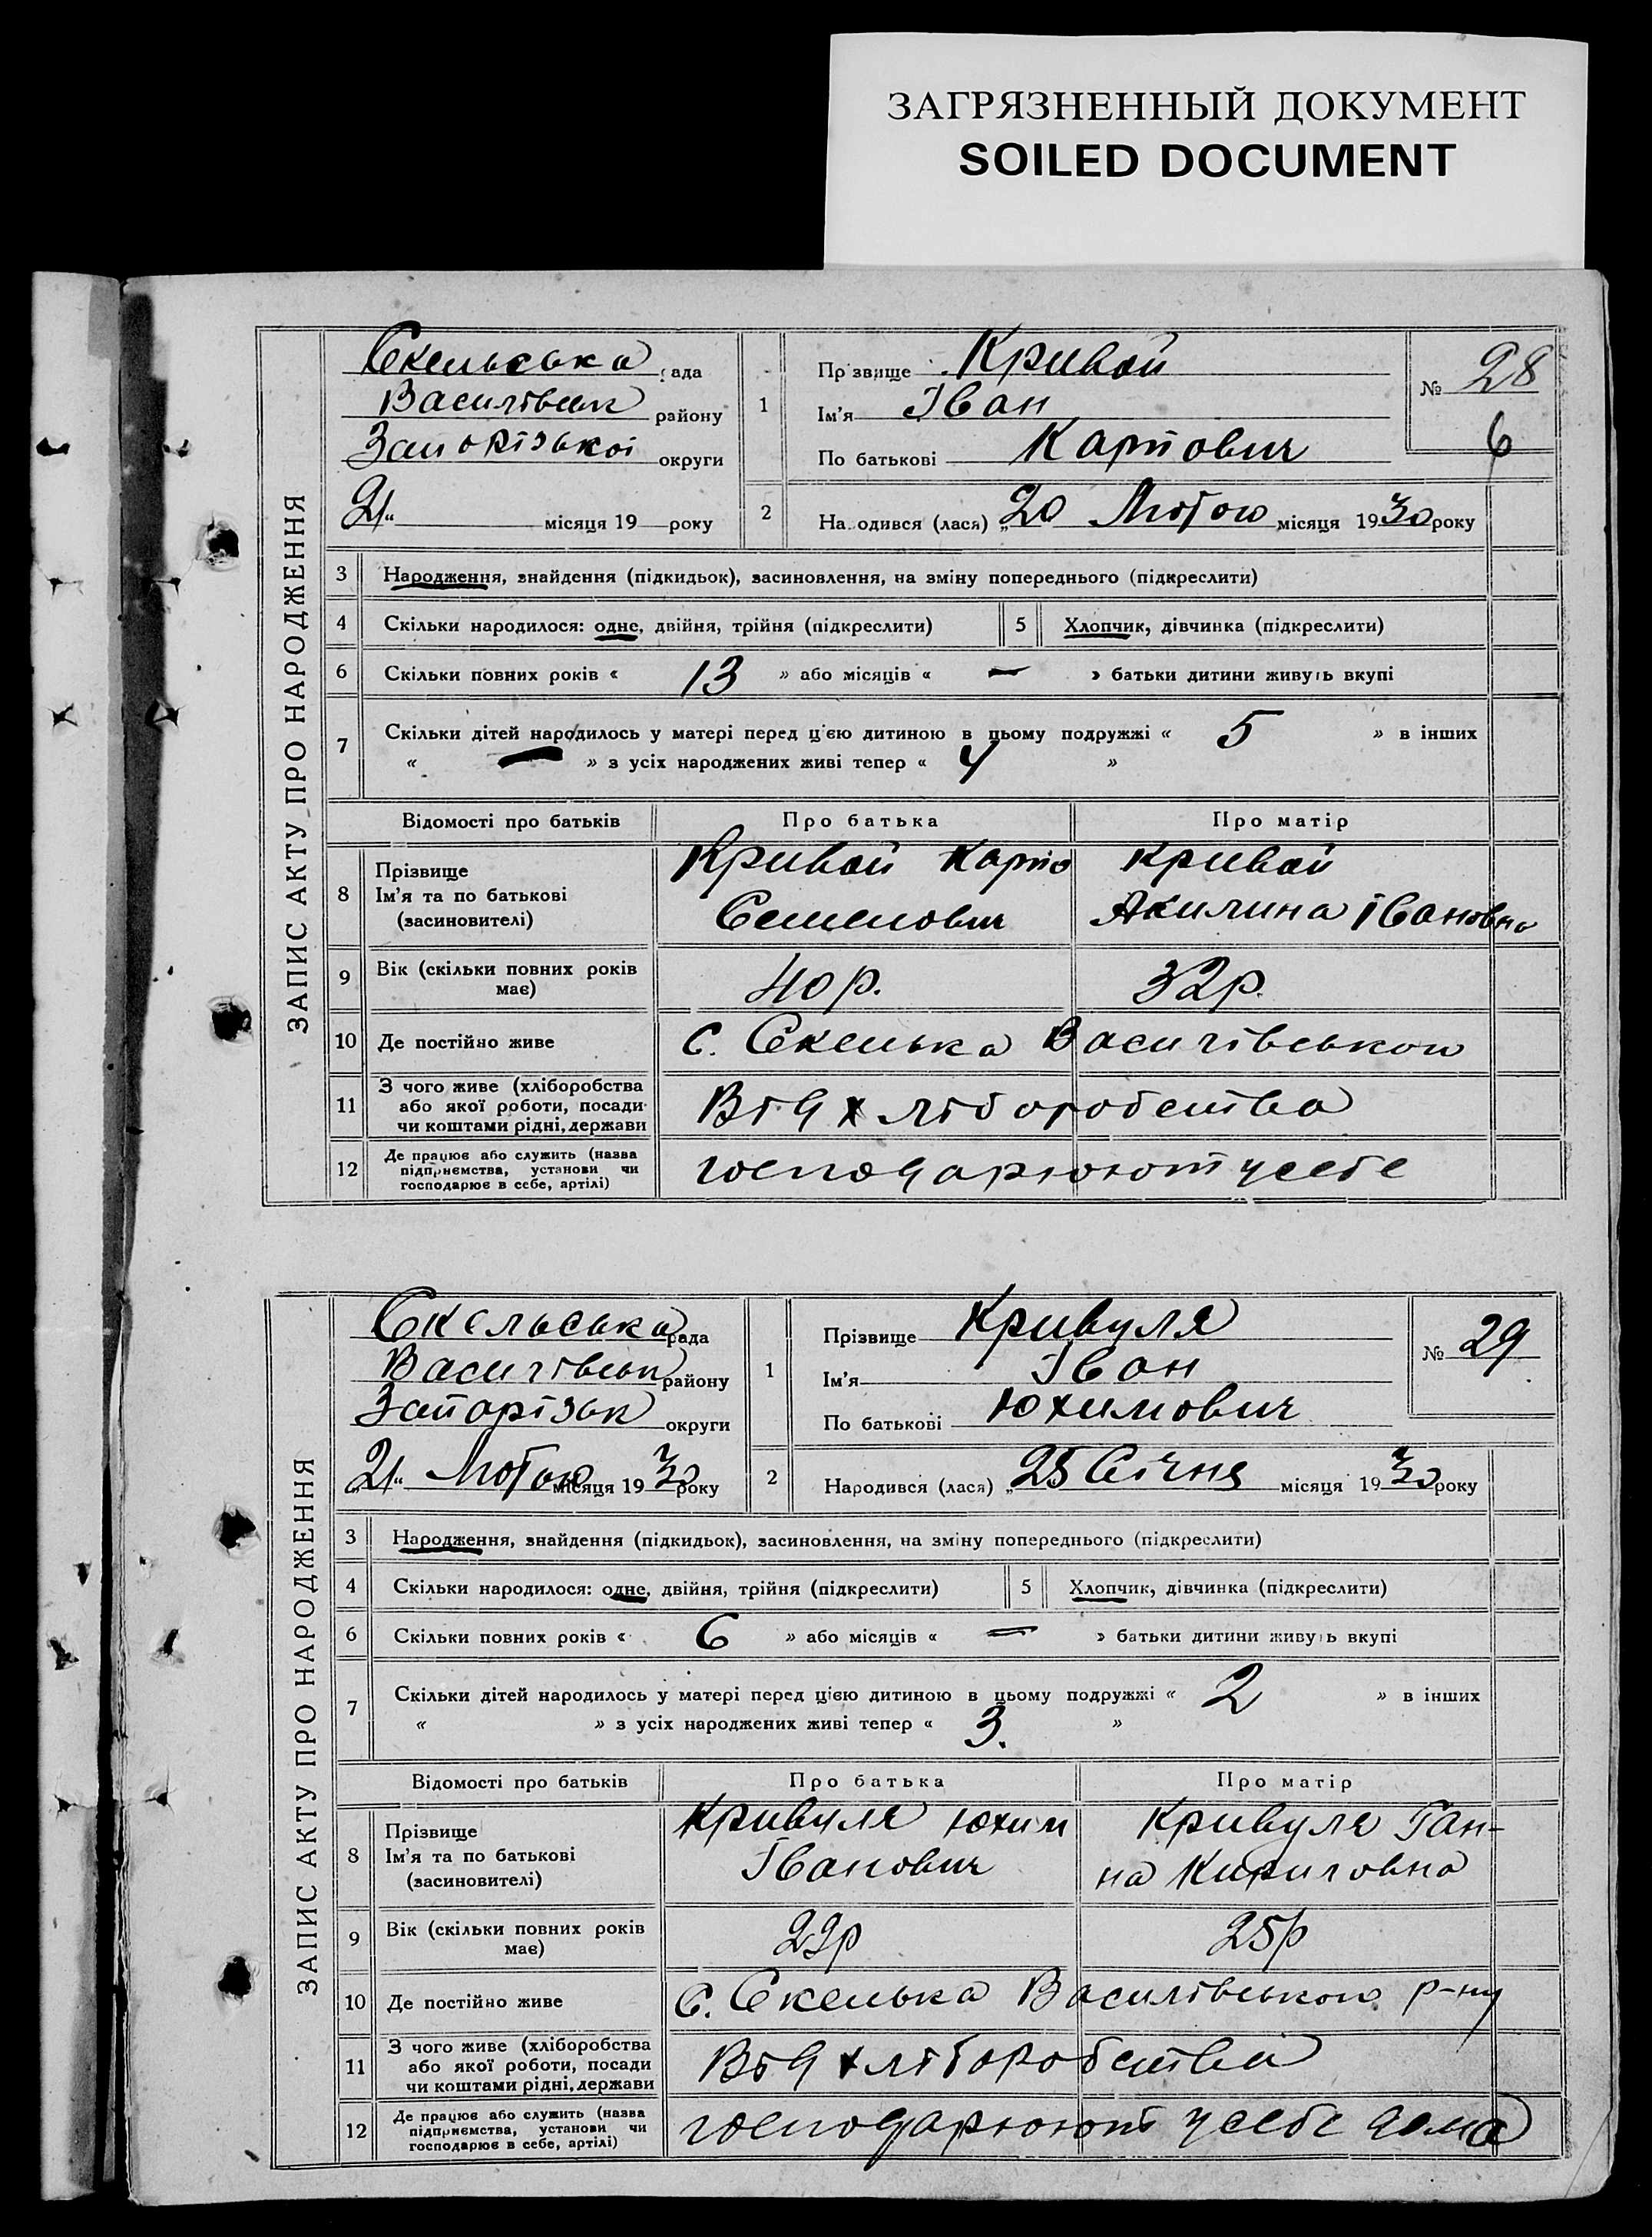 ЗАГРЯЗНЕННЫЙ ДОКУМЕНТ
SOILED DOCUMENT
ЗАПИС АКТУ ПРО НАРОДЖЕННЯ
Скельська рада
Василівськ району
Запорізької округи
„21“ місяця 19 року
1
Прізвище Кривой
Ім'я Іван
По батькові Карпович
№ 28
6
2
Народився (лася) „20 Лютого місяця 1930 року
3 Народження, знайдення (підкидьок), засиновлення, на зміну попереднього (підкреслити)
4 Скільки народилося: одне, двійня, трійня (підкреслити)
5 Хлопчик, дівчинка (підкреслити)
6 Скільки повних років « 13 » або місяців « — » батьки дитини живуть вкупі
7 Скільки дітей народилось у матері перед цією дитиною в цьому подружжі « 5 » в інших
« — » з усіх народжених живі тепер « 4 »
Відомості про батьків Про батька Про матір
8 Прізвище
Ім'я та по батькові
(засиновителі)
Кривой Карпо
Семенович
Кривой
Акилина Івановна
9 Вік (скільки повних років
має)
40 р. 32 р.
10 Де постійно живе с. Скелька Василівського
11 З чого живе (хліборобства
або якої роботи, посади
чи коштами рідні, держави
Від хліборобства
12 Де працює або служить (назва
підприємства, установи чи
господарює в себе, артілі)
господарюют усебе
ЗАПИС АКТУ ПРО НАРОДЖЕННЯ
Скельська рада
Василівськ району
Запорізьк округи
„21“ Лютого місяця 1930 року
1
Прізвище Кривуля
Ім'я Іван
По батькові Юхимович
№ 29
2
Народився (лася) „25 Січня місяця 1930 року
3 Народження, знайдення (підкидьок), засиновлення, на зміну попереднього (підкреслити)
4 Скільки народилося: одне, двійня, трійня (підкреслити)
5 Хлопчик, дівчинка (підкреслити)
6 Скільки повних років « 6 » або місяців « — » батьки дитини живуть вкупі
7 Скільки дітей народилось у матері перед цією дитиною в цьому подружжі « 2 » в інших
« » з усіх народжених живі тепер « 3. »
Відомості про батьків Про батька Про матір
8 Прізвище
Ім'я та по батькові
(засиновителі)
Кривуля Юхим
Іванович
Кривуля Ган-
на Кириловна
9 Вік (скільки повних років
має)
25р
10 Де постійно живе с. Скелька Василівського р-ну
11 З чого живе (хліборобства
або якої роботи, посади
чи коштами рідні, держави
Від хліборобства
12 Де працює або служить (назва
підприємства, установи чи
господарює в себе, артілі)
господарюют усебе дома